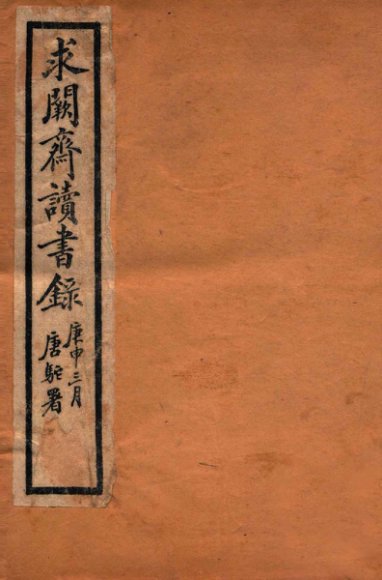 求闕齋讀書錄
庚申三月
唐駝署